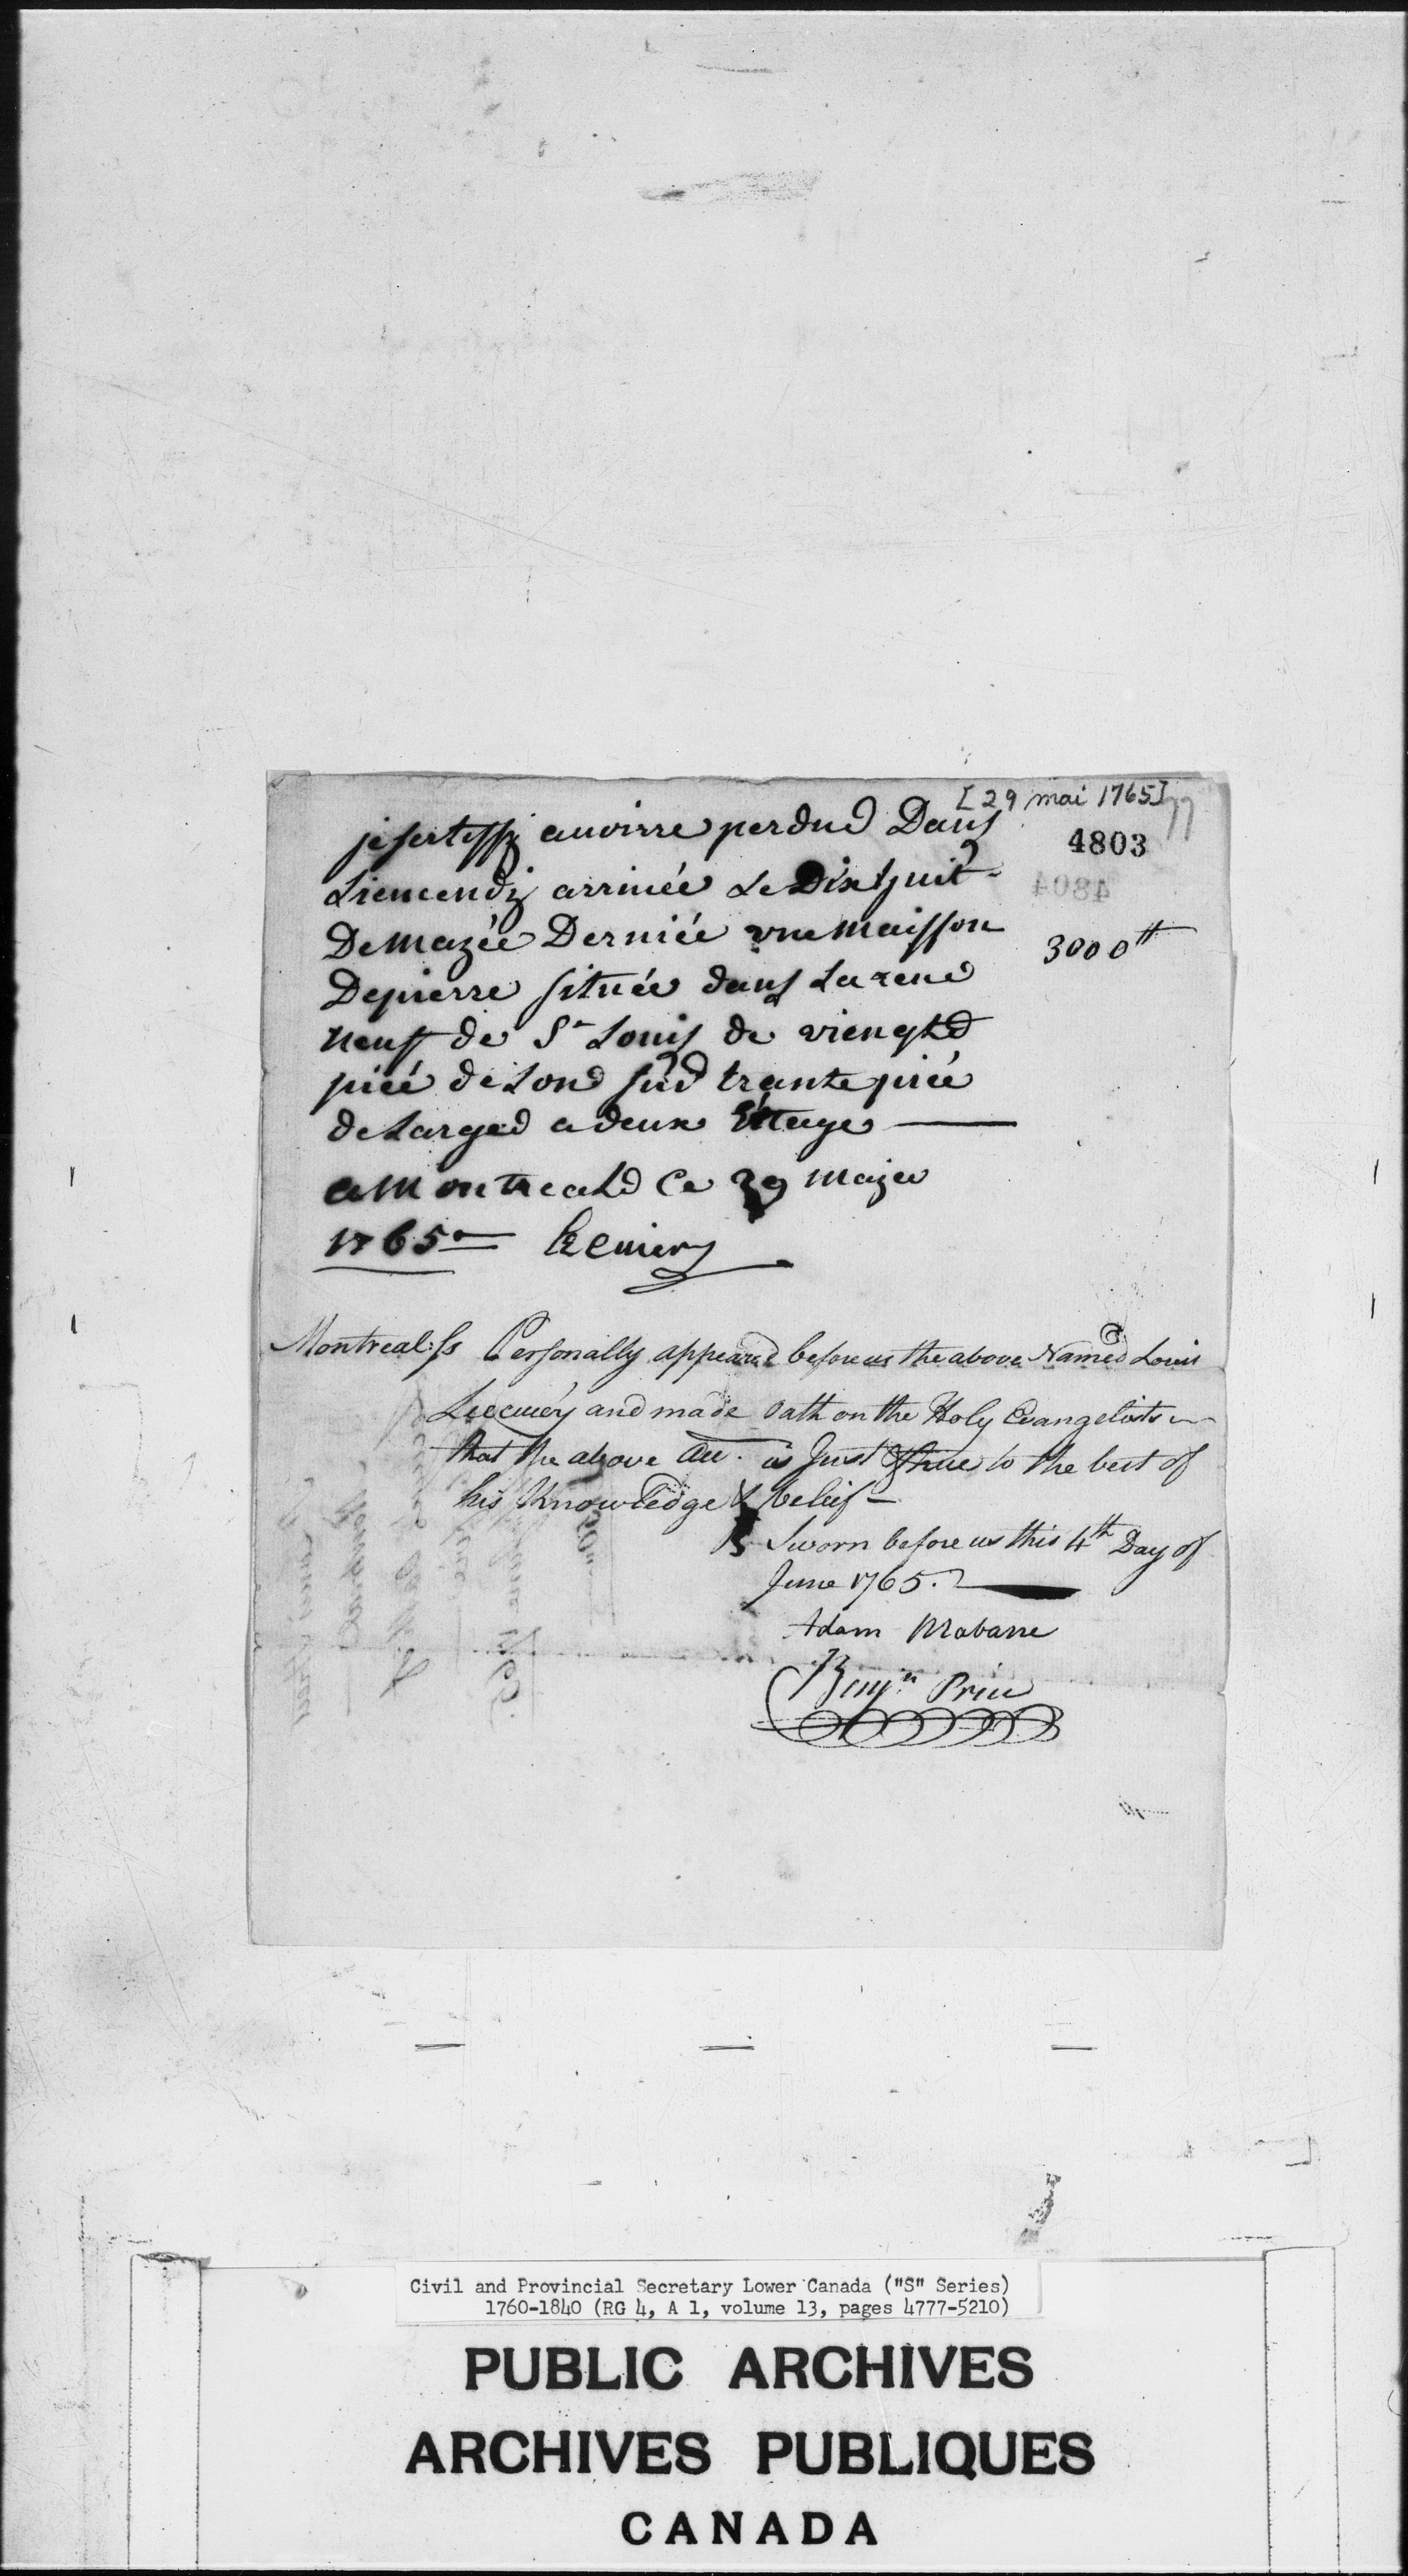 [29 mai 1765]
77
4803
je sertiffy auoirre perdue Dans
Liencendy arrivée Le Dix huit
De mazée Derniée une maisson
3000tt
Depierre située dans La reue
neuf de St Louis de viengt
piée de Lond sur trante piée
de Large a deux Etage
a Montreald Ce 29 maye
1765 Lecuiery
Montreal: ss Personally appeared before us the above Named Louis
Leecuiéy and made Oath on the Holy Evangelists
that the above acc. is Just & true to the best of
his Knowledge & beleif -
Sworn before us this 4th Day of
June 1765.
Adam Mabane
Benjn Price
Civil and Provincial Secretary Lower Canada ("S" Series)
1760-1840 (RG 4, A 1, volume 13, pages 4777-5210)
PUBLIC ARCHIVES
ARCHIVES PUBLIQUES
CANADA